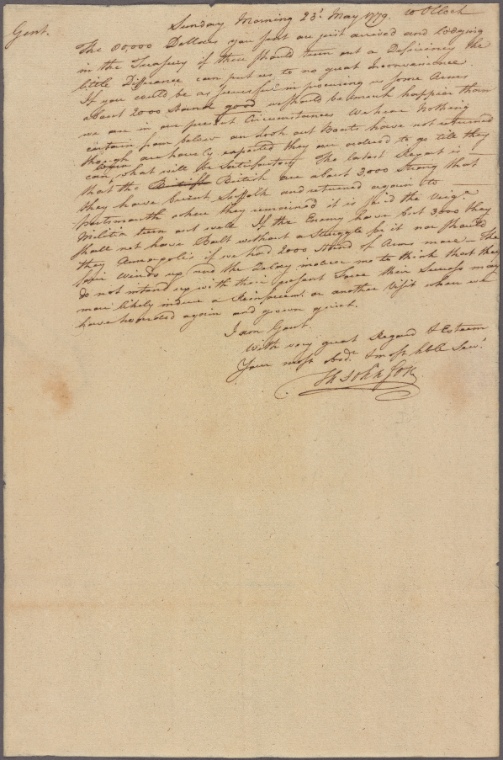 Sunday Morning 23d. May 1779. 10 OClock
Gent.
The 80,000 Dollars you sent are just arrived and lodging
in the Treasury if there should turn out a Deficiency the
little Difference can put us to no great Inconvenience
If you could be as successful in procuring us some Arms
about 2000 Stand good we should be much happier than
we are in our present Circumstances We hear Nothing
certain from below our Look out Boats have not returned
though are hourly expected they are ordered to go till they
can what will be Satisfactory The latest Report is
that the British are about 3000 Strong that
they have burnt Suffolk and returned again to
portsmouth where they remained it is said the Virga.
Militia turn out well. If the Enemy have but 3000 they
shall not have Balt without a Struggle for it nor should
they Annapolis if we had 2000 Stand of Arms more The
fair Winds up and the Delay induce me to think that they
do not intend up with their present Force their Success may
more likely induce a Reinforcemt. or another Visit when we
have here and again and grown quiet.
I am Gent.
With very great Regard & Esteem
Your most Obdt. & most hble Servt.
Th Johnson